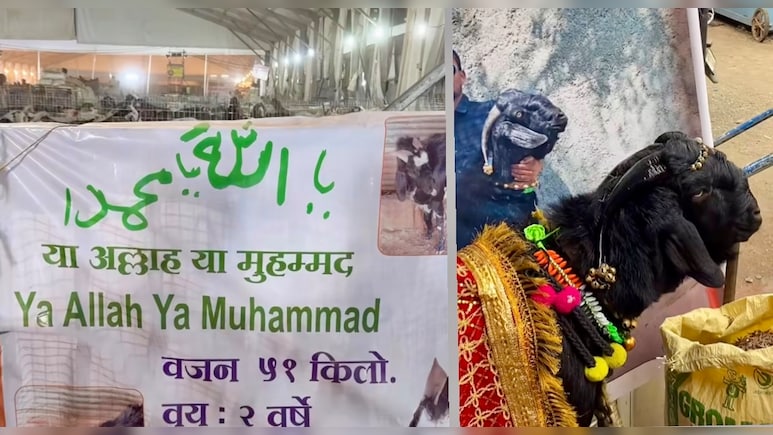 یا اللہ یا محمد
या अल्लाह या मुहम्मद
Ya Allah Ya Muhammad
वजन ५१ किलो.
वय : २ वर्षे
GRO